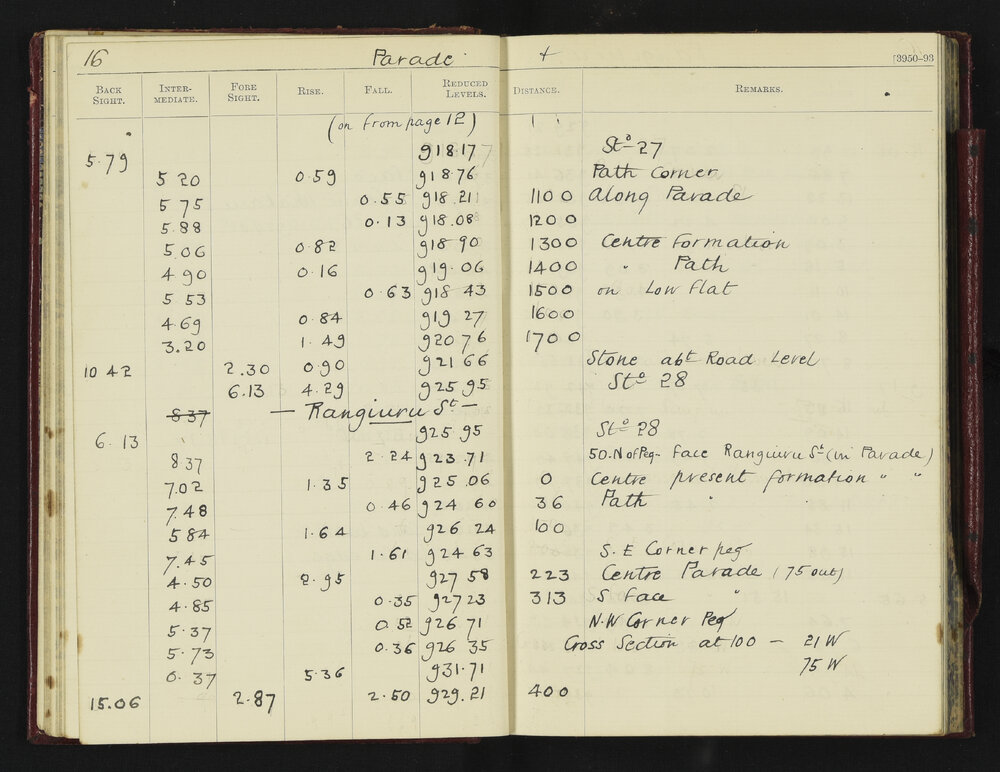 16 Parade + [3950–93
BACK SIGHT. INTER-MEDIATE. FORE SIGHT. RISE. FALL. REDUCED LEVELS. DISTANCE. REMARKS.
(on from page 12)
5.79 918 17 Stn 27
5 20 0.59 918.76 Path Corner
5 75 0.55 918.21 1100 along Parade
5.88 0.13 918.08 1200
5.06 0.82 918 90 1300 Centre Formation
4 90 0.16 919.06 1400 " Path
5 53 0.63 918 43 1500 on Low flat
4.69 0.84 919 27 1600
3.20 1.49 920 76 1700
10 42 2.30 0.90 921 66 Stone abt Road Level
6.13 4.29 925 95 Stn 28
837 — Rangiuru St —
6.13 925 95 Stn 28
837 2.24 923.71 50.N of Peg- face Rangiuru St (in Parade)
7.02 1.35 925.06 0 Centre present formation " "
7.48 0.46 924 60 36 Path "
5 84 1.64 926 24 100
7.45 1.61 924 63 S.E Corner peg
4.50 2.95 927 58 223 Centre Parade (75 out)
4.85 0.35 927 23 313 S face "
5.37 0.52 926 71 N.W Corner Peg
5.73 0.36 926 35 Cross Section at 100 — 21 W
0.37 5.36 931.71 75 W
15.06 2.87 2.50 929.21 400